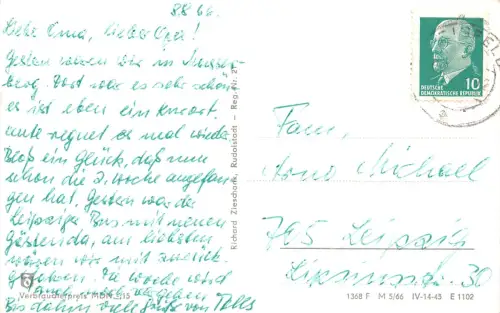 8.8.66.
Liebe Oma, lieber Opa!
Gestern waren wir in
berg. Dort war es sehr schön
es ist eben ein Kurort.
Heute regnet es mal wieder.
Bloß ein Glück, daß nun
schon die 2. Woche angefan-
gen hat. Gestern war der
Leipziger Bus mit neuen
Gästen da, am liebsten
wären wir mit zurück-
gefahren. Die Woche wird
auch noch vergehen
Bis dahin viele Grüße von
Verbraucherpreis MDN -,15
Richard Zieschank, Rudolstadt - Reg.-Nr. 21
DEUTSCHE
DEMOKRATISCHE REPUBLIK
10
Fam.
Arno Michael
705 Leipzig
1368 F M 5/66 IV-14-45 E 1102